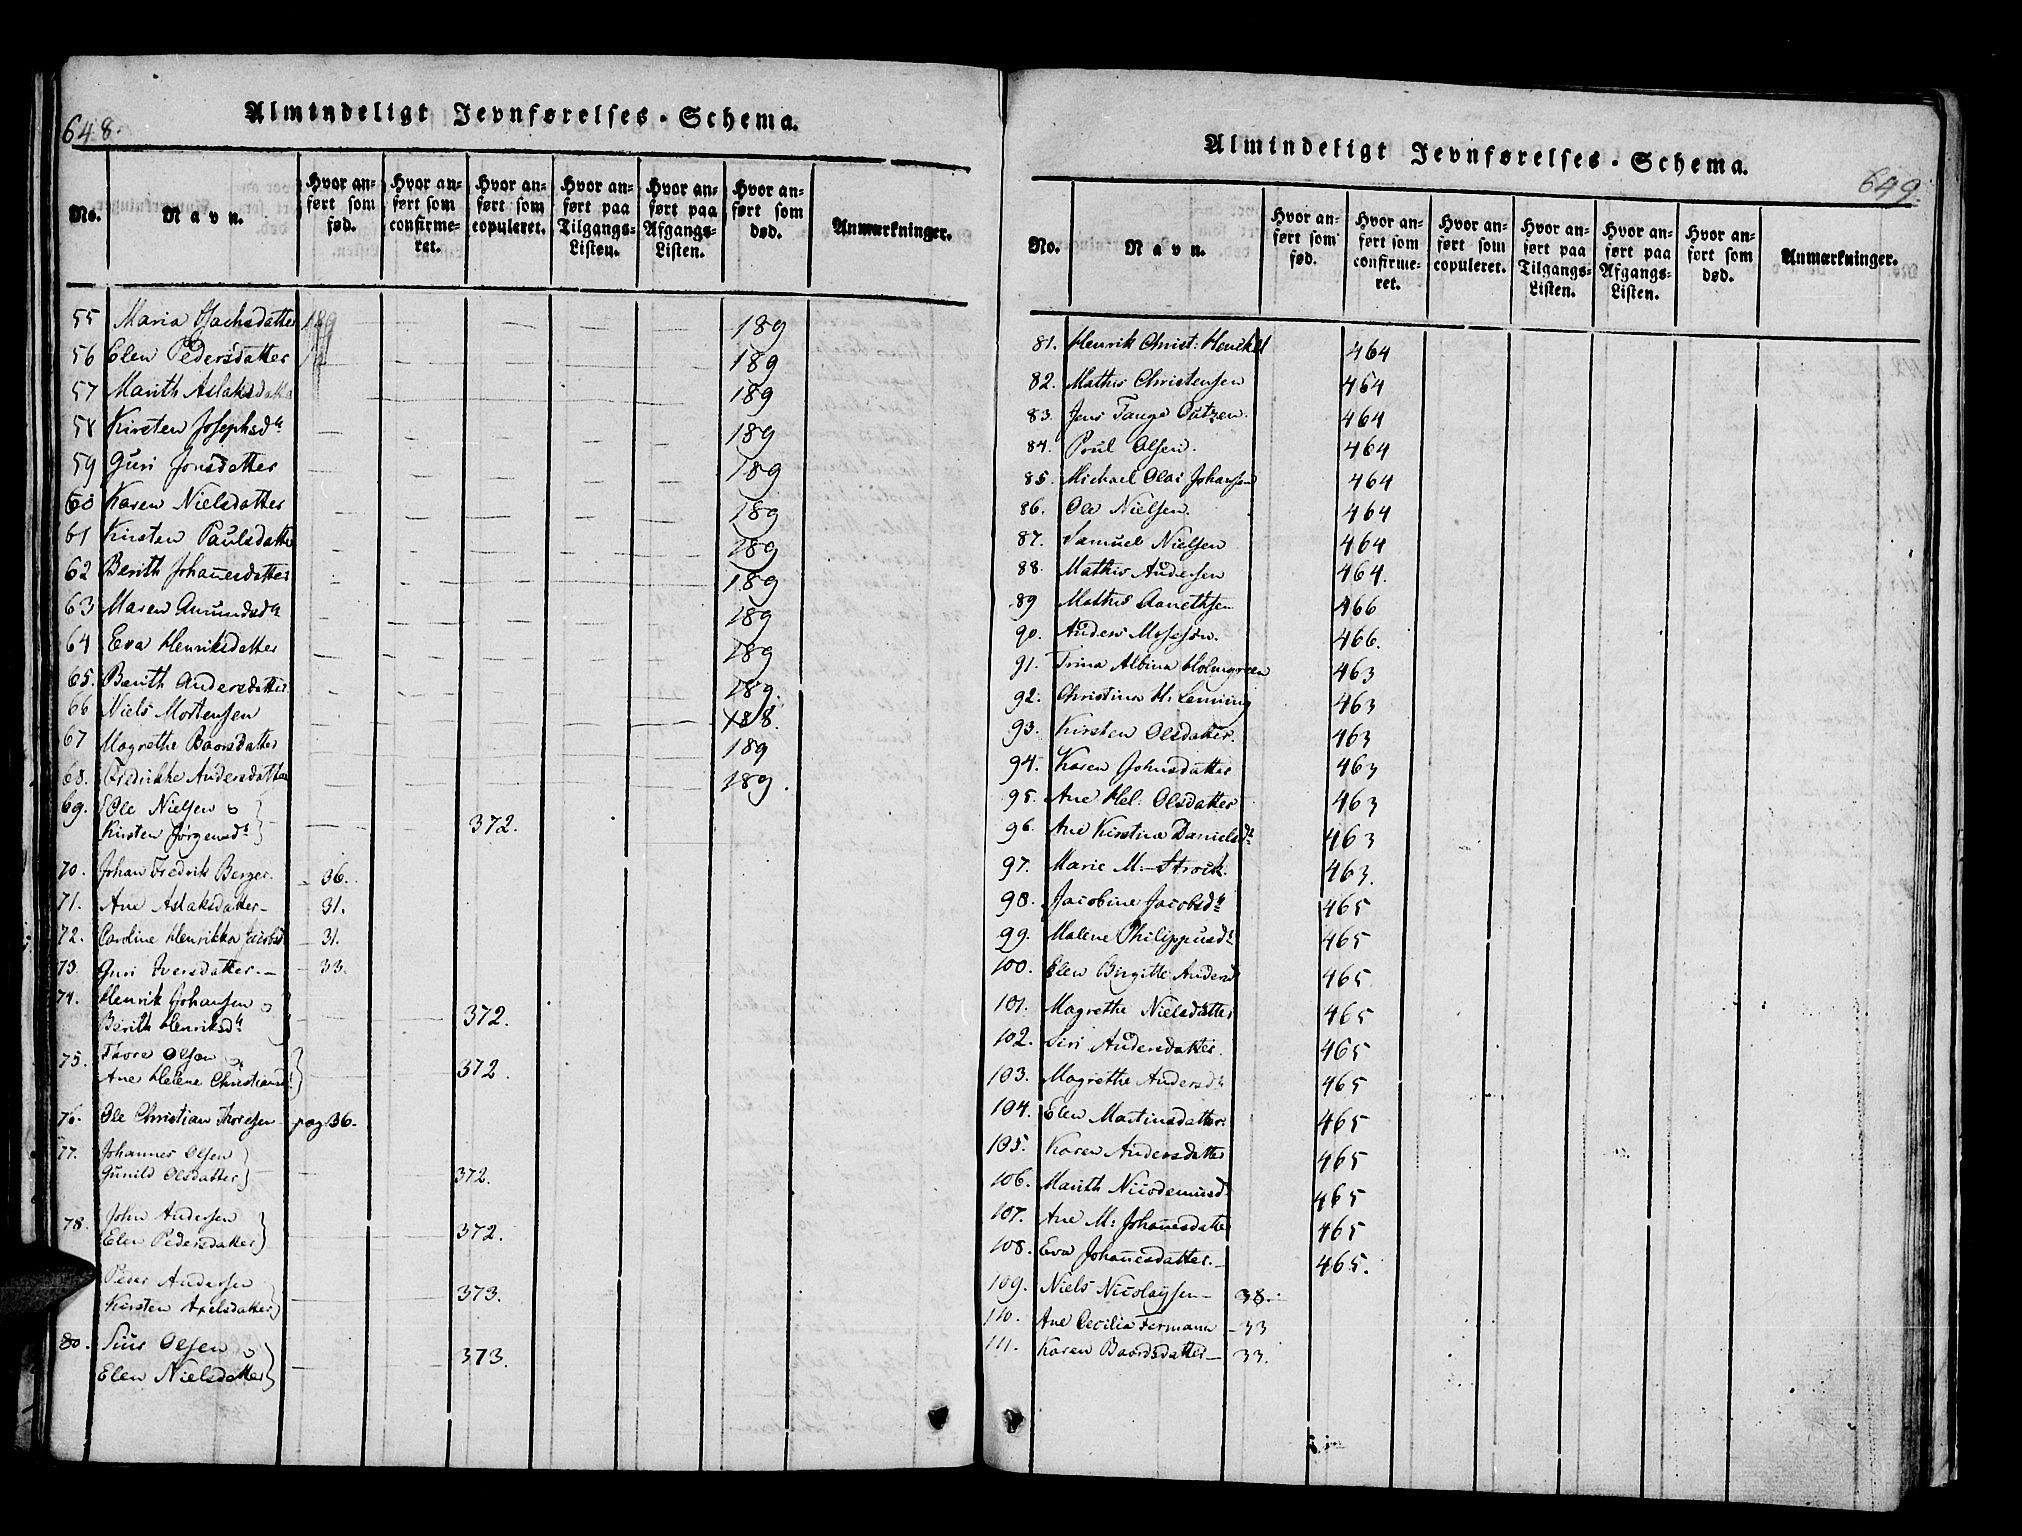 648.
Almindeligt Jevnførelses-Schema.
No. Navn. Hvor anført som fød. Hvor anført som confirmeret. Hvor anført som copuleret. Hvor anført paa Tilgangs-Listen. Hvor anført paa Afgangs-Listen. Hvor anført som død. Anmærkninger.
55 Maria Isachsdatter 189
56 Elen Pedersdatter 189
57 Marith Aslaksdatter 189
58 Kirsten Josephsdr 189
59 Guri Jonsdatter 189
60 Karen Nielsdatter 189
61 Kirsten Paulsdatter 189
62 Berith Johañesdatter 189
63 Maren Amundsdr 189
64 Eva Henriksdatter 189
65. Berith Andersdatter 189.
66 Niels Mortensen 188.
67 Magrethe Baarsdatter 189
68. Fredrikke Andersdatter 189.
69. Ole Nielsen &
Kirsten Jørgensdr 372.
70. Johan Fredrik Berger. 36.
71. Ane Aslaksdatter 31.
72. Caroline Henrikka Jacobsd 31.
73. Guri Iversdatter 33.
74. Henrik Johansen &
Berith Henriksdr 372.
75. Thore Olsen &
Ane Helene Christiansd 372.
76. Ole Christian Thoresen pag 36.
77. Johannes Olsen
Gunild Olsdatter 372.
78. John Andersen
Elen Pedersdatter 372.
Peder Andersen
Kirsten Axelsdatter 373.
80. Siur Olsen &
Elen Nielsdatter 373.
649.
Almindeligt Jevnførelses-Schema.
No. Navn. Hvor anført som fød. Hvor anført som confirmeret. Hvor anført som copuleret. Hvor anført paa Tilgangs-Listen. Hvor anført paa Afgangs-Listen. Hvor anført som død. Anmærkninger.
81. Henrik Christ: Henckel 464
82. Mathis Christensen 464
83. Jens Tange 464
84. Poul Olsen. 464
85. Michael Olai Johansen 464
86. Ole Nielsen. 464
87. Samuel Nielsen 464
88. Mathis Andersen 464.
89 Mathis 466
90. Anders Mosesøn. 466.
91. Trina Albina Holmgreen 463
92. Christina H: 463
93. Kirsten Olsdatter. 463
94. Karen Johnsdatter 463
95. Ane Hel: Olsdatter 463
96. Ane Kirstina Danielsdr 463
97. Marie M. Strøck. 463.
98. Jacobine Jacobsdr 465
99. Malene Philippusdr 465
100. Elen Birgitte Andersd 465
101. Magrethe Nielsdatter 465
102. Siri Andersdatter. 465
103. Magrethe Andersdr 465
104. Elen Martinsdatter. 465
105. Karen Andersdatter 465
106. Marith Nicodemusd. 465
107. Ane M: Johañesdatter 465
108. Eva Johañesdatter. 465.
109. Niels Nicolaysen 38.
110. Ane Cecilia Fermann 33
111. Karen Baardsdatter 33.